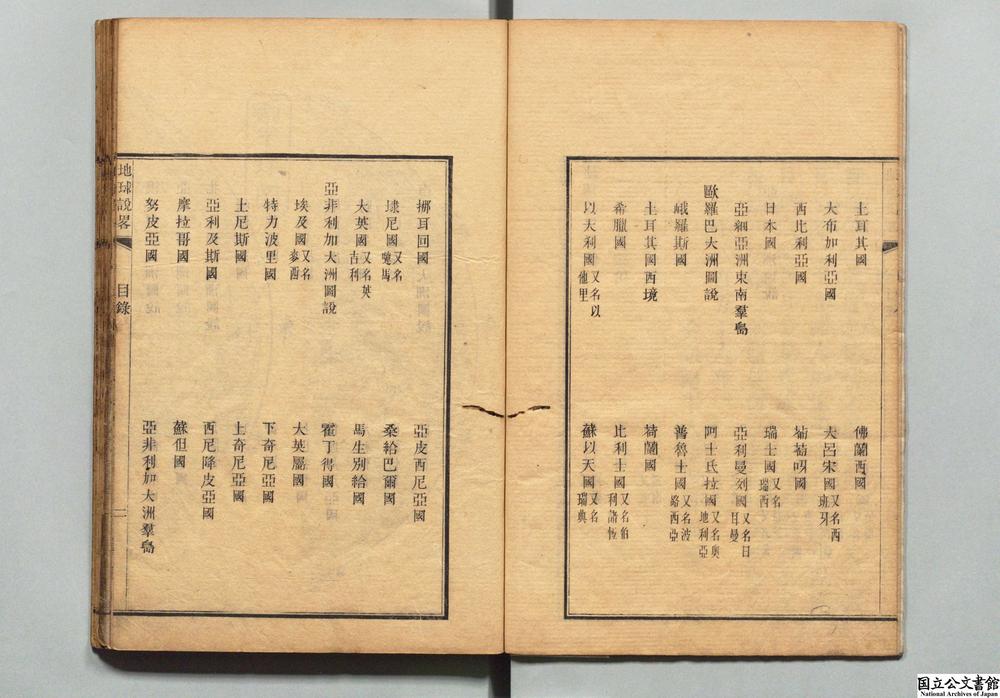 土耳其國
大布加利亞國
西比利亞國
日本國
亞細亞洲東南羣島
歐羅巴大洲圖說
峨羅斯國
土耳其國西境
希臘國
以大利國 又名以他里
佛蘭西國
大呂宋國 又名西班牙
葡萄呀國
瑞士國 又名瑞西
亞利曼列國 又名日耳曼
阿士氐拉國 又名奧地利亞
普魯士國 又名波路西亞
荷蘭國
比利士國 又名伯利諸恆
蘇以天國 又名瑞典
挪耳回國
埭尼國 又名嗹馬
大英國 又名英吉利
亞非利加大洲圖說
埃及國 又名麥西
特力波里國
土尼斯國
亞利及斯國
摩拉哥國
努皮亞國
亞皮西尼亞國
桑給巴爾國
馬生別給國
霍丁得國
大英屬國
下奇尼亞國
上奇尼亞國
西尼降皮亞國
蘇但國
亞非利加大洲羣島
地球說畧
目錄
二
国立公文書館
National Archives of Japan